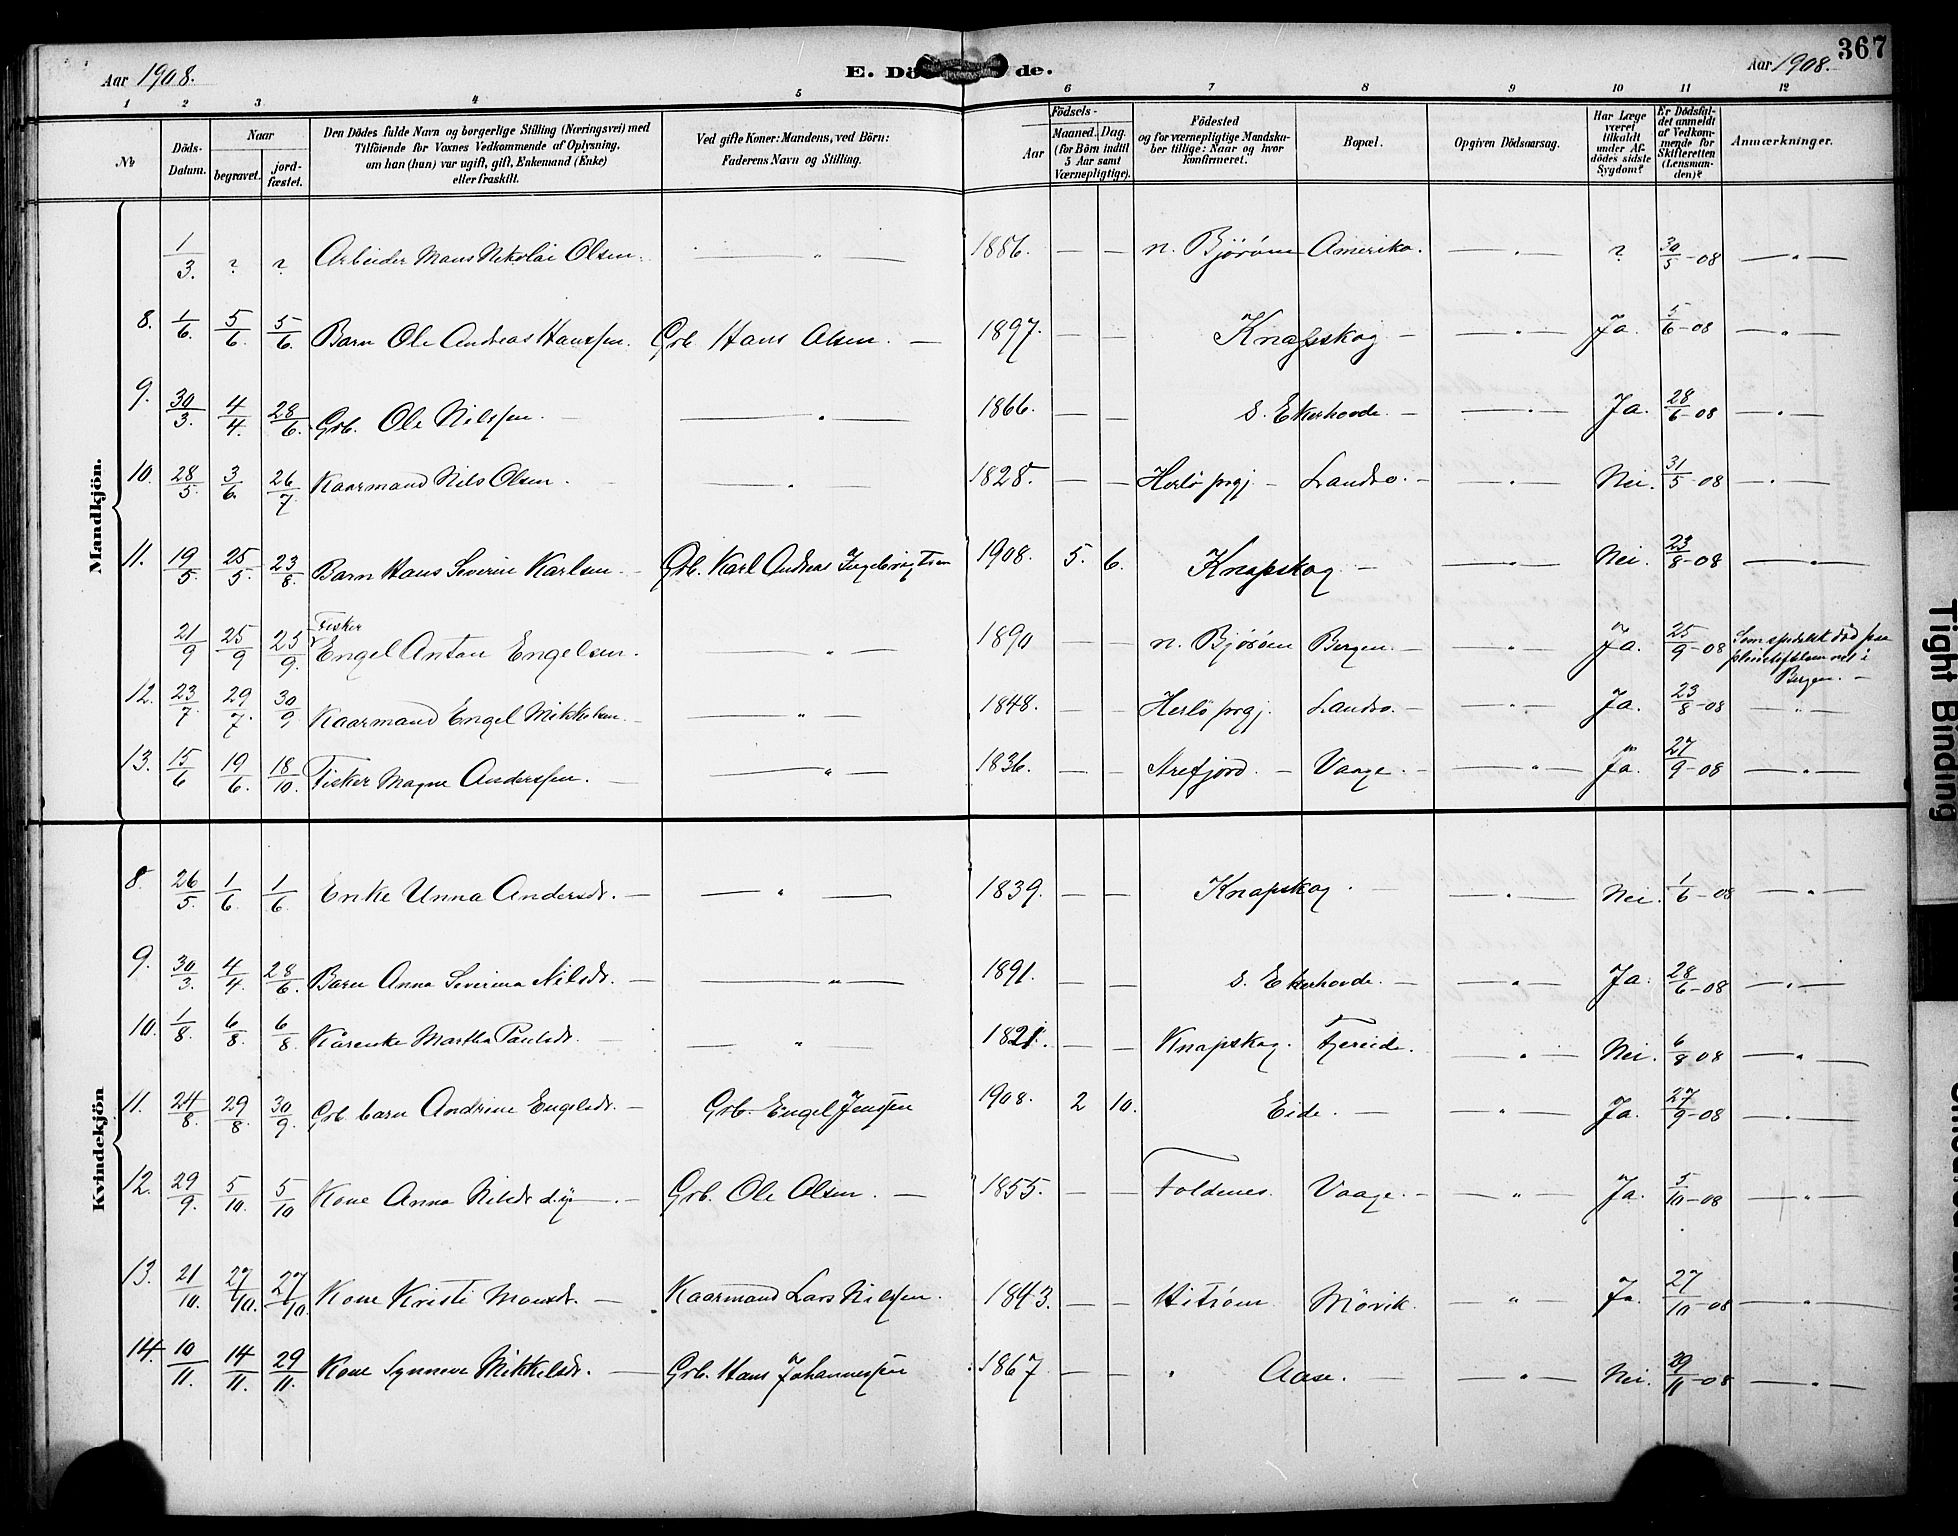 Aar 1908. E. Dö de. Aar 1908. 367
1 2 3 4 5 6 7 8 9 10 11 12
No
Döds-Datum.
Naar
begravet.
jord-fæstet.
Den Dödes fulde Navn og borgerlige Stilling (Næringsvei) med
Tilföiende for Voxnes Vedkommende af Oplysning,
om han (hun) var ugift, gift, Enkemand (Enke)
eller fraskilt.
Ved gifte Koner: Mandens, ved Börn:
Faderens Navn og Stilling.
Födsels-
Aar
Maaned. Dag.
(for Börn indtil
5 Aar samt
Værnepligtige).
Födested
og for værnepligtige Mandska-
ber tillige: Naar og hvor
konfirmeret.
Bopæl.
Opgiven Dödsaarsag.
Har Læge
været
tilkaldt
under Af-
dödes sidste
Sygdom?
Er Dödsfal-
det anmeldt
af Vedkom-
mende for
Skifteretten
(Lensman-
den)?
Anmærkninger.
Mandkjön.
1/3. ? ? Arbeider Mons Nikolai Olsen. — " — 1856. — — n. Bjoröen Amerika. — " — ? 30/5 - 08 — " —
8. 1/6. 5/6. 5/6. Barn Ole Andreas Hanssen. Grb. Hans Olsen. — 1897. — — Knapskog — — " — Ja. 5/6 - 08 — " —
9. 30/3. 4/4. 28/6. Grb. Ole Nilssen. — — " — 1866. — — s. Ekerhovde. — — " — Ja. 28/6 - 08 — " —
10. 28/5. 3/6. 26/7. Kaarmand Nils Olsen. — " — 1828. — — Herlö prgj. — Landro. — — " — Nei. 31/5 - 08 — " —
11. 19/5. 25/5. 23/8. Barn Hans Severin Karlsen. — Grb. Karl Andreas Ingebrigtsen 1908. 5. 6. Knapskog — — " — Nei. 23/8 - 08 — " —
Fisker
21/9 25/9 25/9. Engel Anton Engelsen. — " — 1890 — — n. Bjoröen Bergen. — — " — Ja. 25/9 - 08 Som spedalsk död paa
pleiestiftelsen no 1 i
Bergen. —
12. 23/7. 29/7. 30/9 Kaarmand Engel Mikkelsen. — " — 1848. — — Herlö prgj. Landro. — " — Ja. 23/8 - 08 — " —
13. 15/6 19/6. 18/10. Fisker Magne Anderssen. — — " — 1836. — — Strefjord. — Vaage. — — " — Ja. 27/9 - 08 — " —
Kvindekjön
8. 26/5. 1/6. 1/6. Enke Unna Andersdr. — — " — 1839. — — Knapskog. — — " — Nei. 1/6 - 08 — " —
9. 30/3. 4/4. 28/6. Barn Anna Severina Nilsdr. — — " — 1891. — — s. Ekerhovde. — — " — Ja. 28/6 - 08 — " —
10. 1/8. 6/8. 6/8 Kårenke Martha Paulsdr. — — " — 1821. — — Knapskog. Fjereide. — " — Nei. 6/8 08 — " —
11. 24/8. 29/8. 30/9. Grb. barn Andrine Engelsdr. — Grb. Engel Jenssen 1908. 2 10. Eide. — — " — Ja. 27/9 - 08 — " —
12. 29/9. 5/10. 5/10 Kone Anna Nilsdr — Grb. Ole Olsen. — 1855. — — Foldenes. Vaage. — — " — Ja. 5/10 - 08 — " —
13. 21/10. 27/10. 27/10. Kone Kristi Monsdr. — Kaarmand Lars Nilssen. 1843. — — Hitröen Mövik. — " — Ja. 27/10 - 08 — " —
14. 10/11. 14/11. 29/11. Kone Synneve Mikkelsdr. — Grb. Hans Johannessen 1867 — — " Aase. — — " — Nei. 29/11 - 08 — " —
Tight Binding